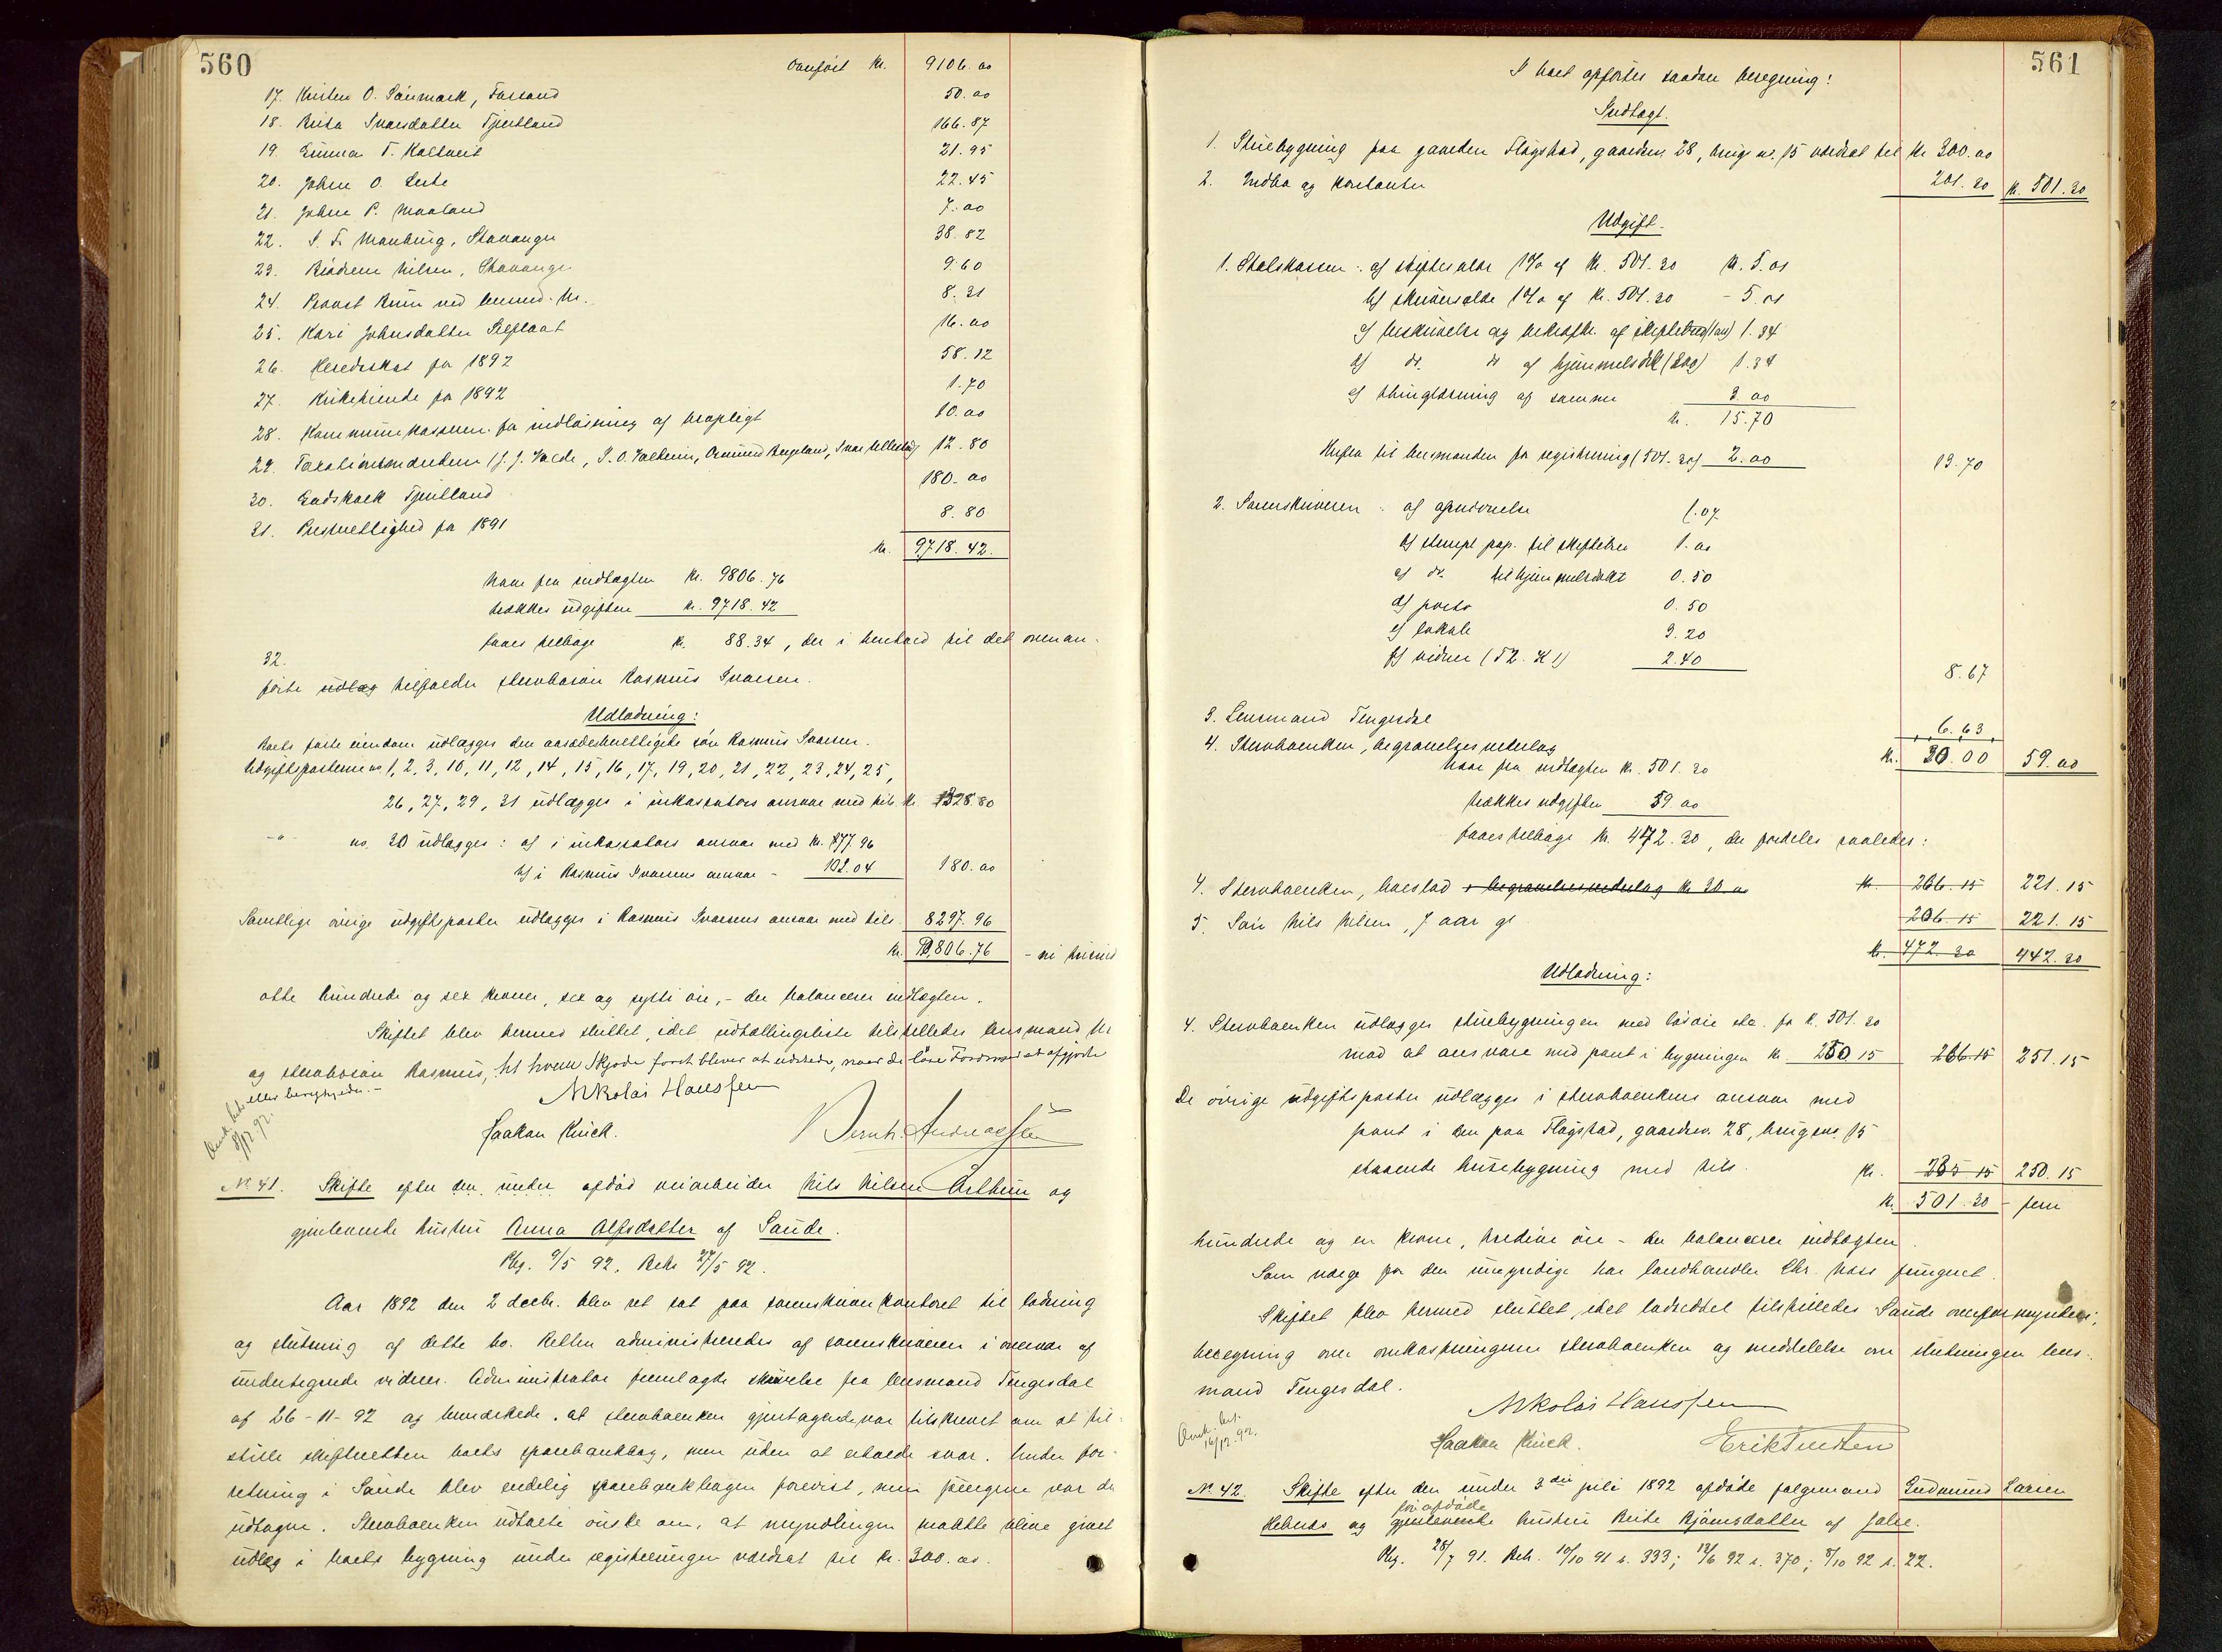 560
Overført Kr. 9106.00
17. Kristen O. Sånmark, Farsund 50.00
18. Brita Svarsdatter Tjeltland 166.87
19. Gunnar T. Kaltveit 21.95
20. Johan O. Leite 22.45
21. Johan P. Maaland 7.00
22. S. F. Mauburg, Stavanger 38.82
23. Brødrene Nilsen, Stavanger 9.60
24. Provst Bruun ved lensmd. Nr. 8.31
25. Kari Johnsdatter Selflaat 16.00
26. Heredsskat for 1892 58.12
27. Kirketiende for 1892 1.70
28. Kommunekassen for indløsning af 10.00
29. Taxationsmændene (J. J. Valde, S. O. Valheim, Omund Bergeland, Svar Ullestad) 12.80
30. Gudskalk Tjeltland 180.00
31. Presterettighed for 1891 8.80
Kr. 9718.42.
Naar fra indtægten Kr. 9806.76
trækkes udgiften Kr. 9718.42
faaes tilbage Kr. 88.34, der i henhold til det ovenan-
32.
førte udlæg tilfalder stervbosøn Rasmus Svarsen.
Udlodning:
Boets faste eiendom udlægges den aasædesberettigede søn Rasmus Svarsen.
Udgiftsposterne no 1, 2, 3, 10, 11, 12, 14, 15, 16, 17, 19, 20, 21, 22, 23, 24, 25,
26, 27, 29, 31 udlægges i inkassators ansvar med tils. Kr. 1328.80
-"- no. 30 udlægges: a) i inkassators ansvar med Kr. 77.96
b) i Rasmus Svarsens ansvar - 102.04 180.00
Samtlige øvrige udgiftsposter udlægges i Rasmus Svarsens ansvar med tils. 8297.96
Kr. 9,806.76 - ni tusind
otte hundrede og sex kroner, sex og sytti øre, - der balancerer indtægten.
Skiftet blev hermed sluttet, idet udtællingsliste tilstilledes lensmand Nr
og stervbosøn Rasmus, til hvem Skjøde først bliver at udstede, naar de løse Fordringer er afgjorte
eller berigtigede. -
Nikolai Hanssen
Haakon Kinck. Bernh. Andreassen
Anm. bet.
8/12 92.
No 41. Skifte efter den under afdød veiarbeider Nils Nilsen Østhun og
gjenlevende hustru Anna Olfsdatter af Saude.
Reg. 9/5 92, Beh. 27/5 92.
Aar 1892 den 2 decbr. blev ret sat paa sorenskriverkontoret til lodning
og slutning af dette bo. Retten administreredes af sorenskriveren i overvær af
undertegnede vidner. Administrator fremlagde skrivelse fra lensmand Tengesdal
af 26-11-92 og bemærkede, at stervboenken gjentagende var tilskrevet om at til-
stille skifteretten boets sparebankbog, men uden at erholde svar. Under for-
retning i Saude blev endelig sparebankbogen forevist, men pengene var da
udtagne. Stervboenken udtalte ønske om, at myndlingen maatte blive givet
udlæg i boets bygning under registreringen værdsat til Kr. 300.00.
561
I boet opførtes saadan beregning:
Indtægt.
1. Stuebygning paa gaarden Flagstad, gaardsn. 28, brugs no. 15 værdsat til Kr 300.00
2. Indbo og kontanter 201.30 Kr. 501.30
Udgift.
1. Statskassen: a) skiftesalær 1% af Kr. 501.30 Kr. 5.01
b) skriversalær 1% af Kr. 501.30 - 5.01
c) beskrivelse og bekræft. af skiftebrev 1.34
d) do. do af hjemmelsdok (200) 1.34
e) thinglæsning af samme 3.00
Kr. 15.70
Herfra til lensmanden for registrering (501.30) 2.00 13.70
2. Sorenskriveren: a) gjenparter 1.07
b) stempl. pap. til skiftebrev 1.00
c) do. til hjemmelsdokt 0.50
d) porto 0.50
e) lokale 3.20
f) vidner (52. K 1) 2.40
8.67
3. Lensmand Tengesdal 6.63
4. Stervboenken, begravelsesvederlag Kr. 30.00 59.00
Naar fra indtægten Kr. 501.30
trækkes udgiften 59.00
faaes tilbage Kr. 442.30, der fordeles saaledes:
4. Stervboenken, boeslod + begravelsesvederlag Kr 30.00 Kr. 266.15 221.15
5. Søn Nils Nilsen, 7 aar gl 206.15 221.15
Kr. 472.30 442.30
Udlodning:
4. Stervboenken udlægges stuebygningen med løsøre etc. for Kr. 501.30
mod at ansvare med pant i bygningen Kr. 250.15 266.15 251.15
De øvrige udgiftsposter udlægges i stervboenkens ansvar med
pant i den paa Flagstad, gaardsno. 28, brugsno. 15
staaende husebygning med tils. Kr. 235.15 250.15
Kr. 501.30 - fem
hundrede og en krone, tredive øre - der balancerer indtægten.
Som værge for den umyndige har landhandler Chr. Næss fungeret.
Skiftet blev hermed sluttet, idet lodseddel tilstilledes Saude overformynderi;
beregning over omkostningerne stervboenken og meddelelse om slutningen lens-
mand Tengesdal.
Nikolai Hanssen
Haakon Kinck. Erik Knutsen
Anm. bet.
16/12 92.
No 42. Skifte efter den under 3die juli 1892 afdøde følgemand Gudmund Larsen
Hebnes og gjenlevende hustru Brite Bjørnsdatter af Jelse.
før afdøde
Reg. 28/7 91. Beh. 10/10 91 s. 333; 13/6 92 s. 370; 8/10 92 s. 22.